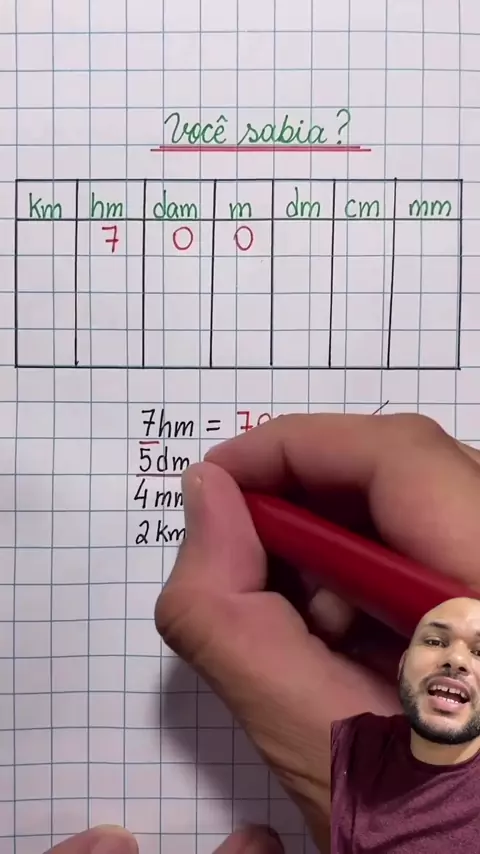 Você sabia?
km hm dam m dm cm mm
7 0 0
7hm =
5dm
4
2 km